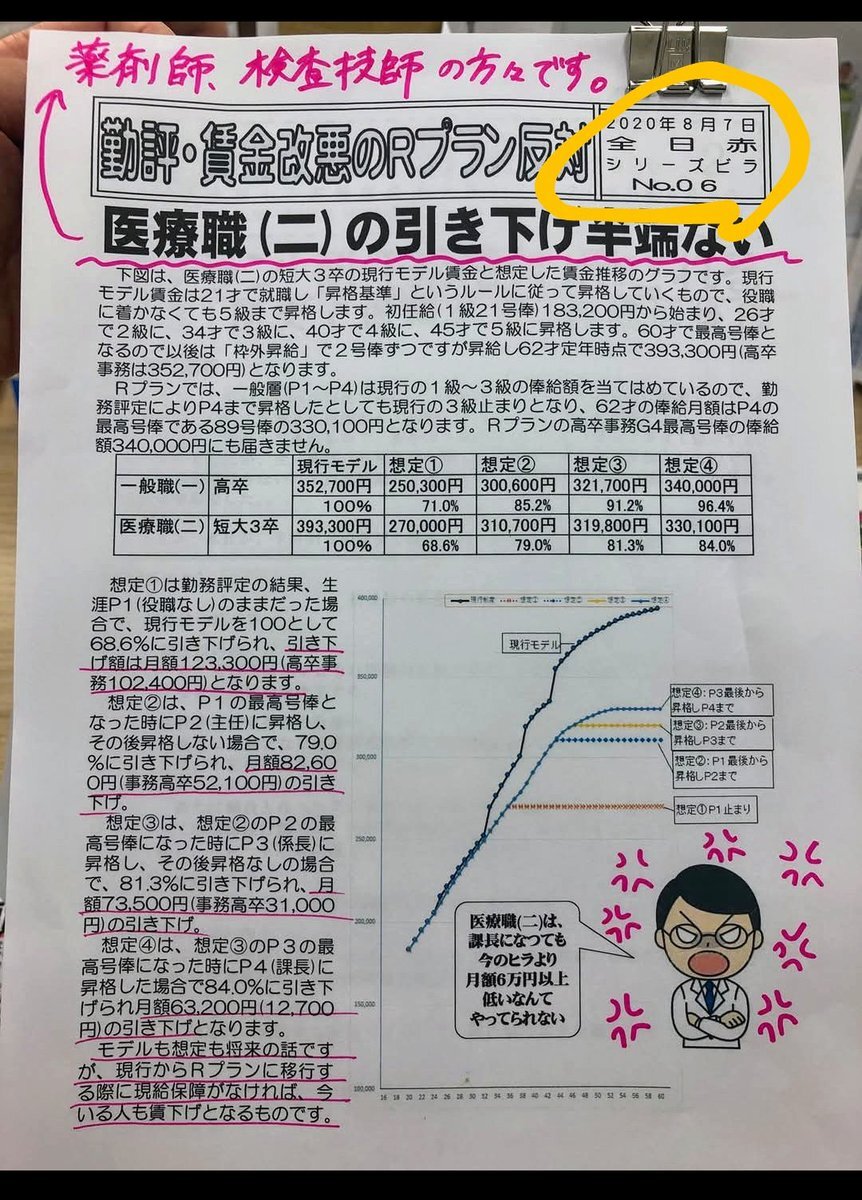 薬剤師、検査技師の方々です。
勤評・賃金改悪のRプラン反対
2020年8月7日
全日赤
シリーズビラ
No.06
医療職(二)の引き下げ半端ない
下図は、医療職(二)の短大3卒の現行モデル賃金と想定した賃金推移のグラフです。現行
モデル賃金は21才で就職し「昇格基準」というルールに従って昇格していくもので、役職
に着かなくても5級まで昇格します。初任給(1級21号俸)183,200円から始まり、26才
で2級に、34才で3級に、40才で4級に、45才で5級に昇格します。60才で最高号俸と
なるので以後は「枠外昇給」で2号俸ずつですが昇給し62才定年時点で393,300円(高卒
事務は352,700円)となります。
Rプランでは、一般層(P1～P4)は現行の1級～3級の俸給額を当てはめているので、勤
務評定によりP4まで昇格したとしても現行の3級止まりとなり、62才の俸給月額はP4の
最高号俸である89号俸の330,100円となります。Rプランの高卒事務G4最高号俸の俸給
額340,000円にも届きません。
現行モデル 想定① 想定② 想定③ 想定④
一般職(一) 高卒 352,700円 250,300円 300,600円 321,700円 340,000円
100% 71.0% 85.2% 91.2% 96.4%
医療職(二) 短大3卒 393,300円 270,000円 310,700円 319,800円 330,100円
100% 68.6% 79.0% 81.3% 84.0%
想定①は勤務評定の結果、生
涯P1(役職なし)のままだった場
合で、現行モデルを100として
68.6%に引き下げられ、引き下
げ額は月額123,300円(高卒事
務102,400円)となります。
想定②は、P1の最高号俸と
なった時にP2(主任)に昇格し、
その後昇格しない場合で、79.0
%に引き下げられ、月額82,60
0円(事務高卒52,100円)の引き
下げ。
想定③は、想定②のP2の最
高号俸になった時にP3(係長)に
昇格し、その後昇格なしの場合
で、81.3%に引き下げられ、月
額73,500円(事務高卒31,000
円)の引き下げ。
想定④は、想定③のP3の最
高号俸になった時にP4(課長)に
昇格した場合で84.0%に引き下
げられ月額63,200円(12,700
円)の引き下げとなります。
モデルも想定も将来の話です
が、現行からRプランに移行す
る際に現給保障がなければ、今
いる人も賃下げとなるものです。
現行制度 想定① 想定② 想定③ 想定④
400,000
350,000
300,000
250,000
200,000
150,000
100,000
16 18 20 22 24 26 28 30 32 34 36 38 40 42 44 46 48 50 52 54 56 58 60
現行モデル
想定④：P3最後から
昇格しP4まで
想定③：P2最後から
昇格しP3まで
想定②：P1最後から
昇格しP2まで
想定①P1止まり
医療職(二)は、
課長になつても
今のヒラより
月額6万円以上
低いなんて
やってられない